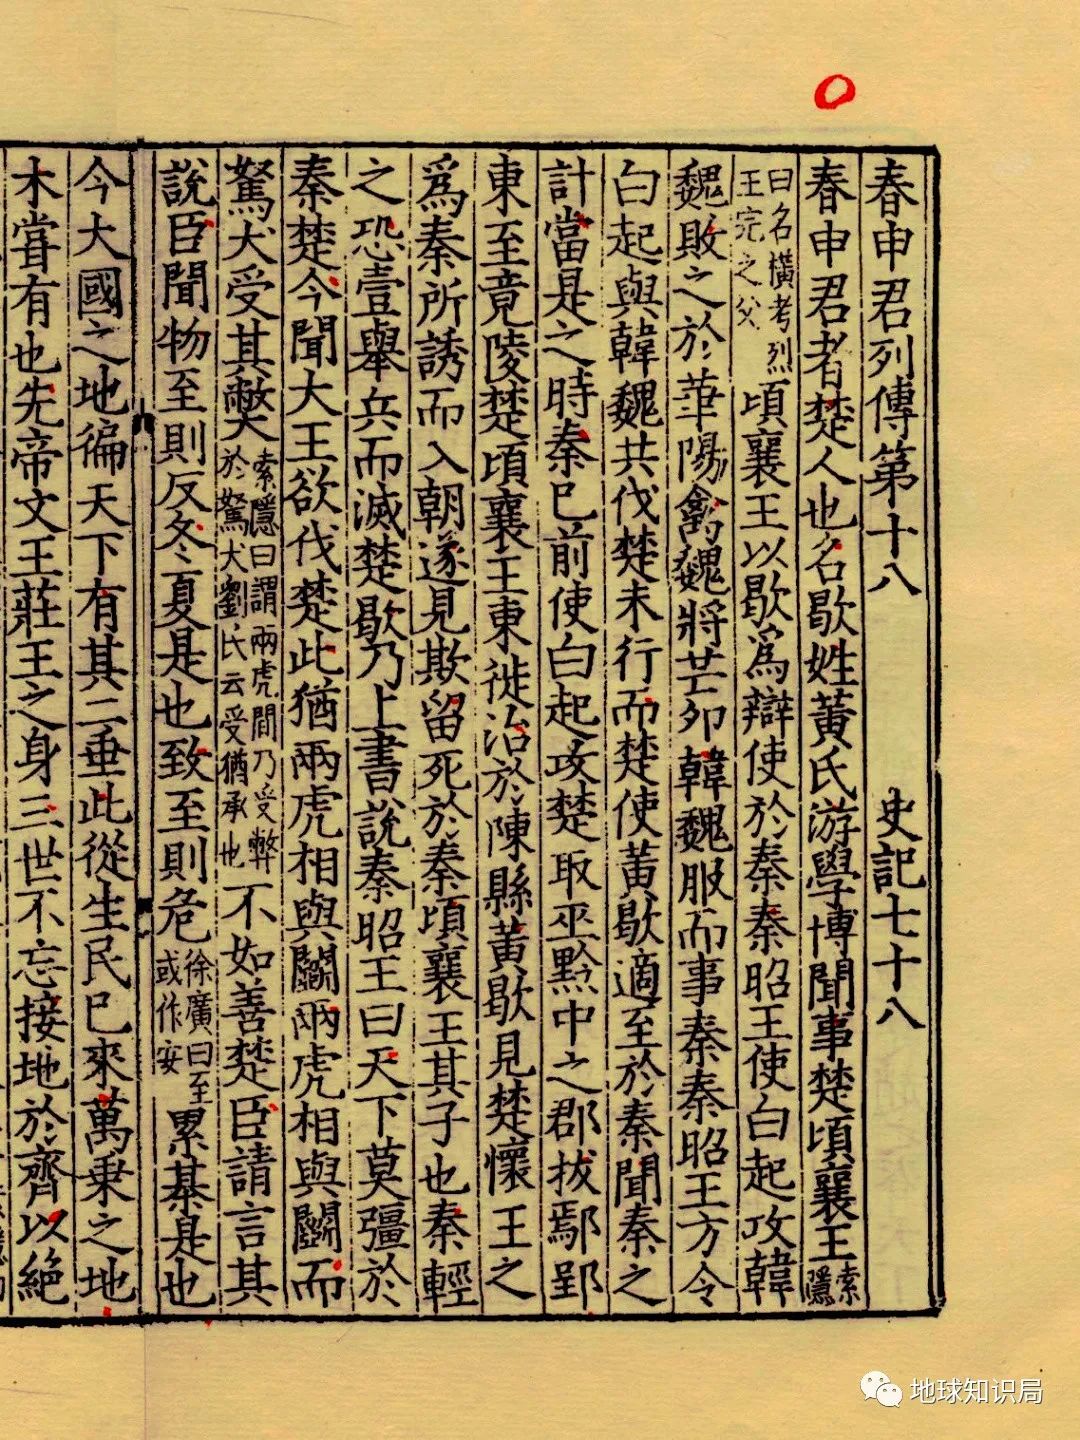 春申君列傳第十八　史記七十八
春申君者楚人也名歇姓黃氏游學博聞事楚頃襄王索隱
曰名橫考烈王完之父頃襄王以歇爲辯使於秦秦昭王使白起攻韓
魏敗之於華陽禽魏將芒卯韓魏服而事秦秦昭王方令
白起與韓魏共伐楚未行而楚使黃歇適至於秦聞秦之
計當是之時秦已前使白起攻楚取巫黔中之郡拔鄢郢
東至竟陵楚頃襄王東徙治於陳縣黃歇見楚懷王之
爲秦所誘而入朝遂見欺留死於秦頃襄王其子也秦輕
之恐壹舉兵而滅楚歇乃上書說秦昭王曰天下莫彊於
秦楚今聞大王欲伐楚此猶兩虎相與鬭兩虎相與鬭而
駑犬受其獘索隱曰謂兩虎鬭乃受弊於駑犬劉氏云受猶承也不如善楚臣請言其
說臣聞物至則反冬夏是也致至則危徐廣曰至或作安累棊是也
今大國之地徧天下有其二垂此從生民已來萬乗之地
未嘗有也先帝文王莊王之身三世不忘接地於齊以絕
地球知识局